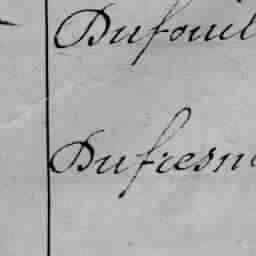 Dufouil
Dufresn